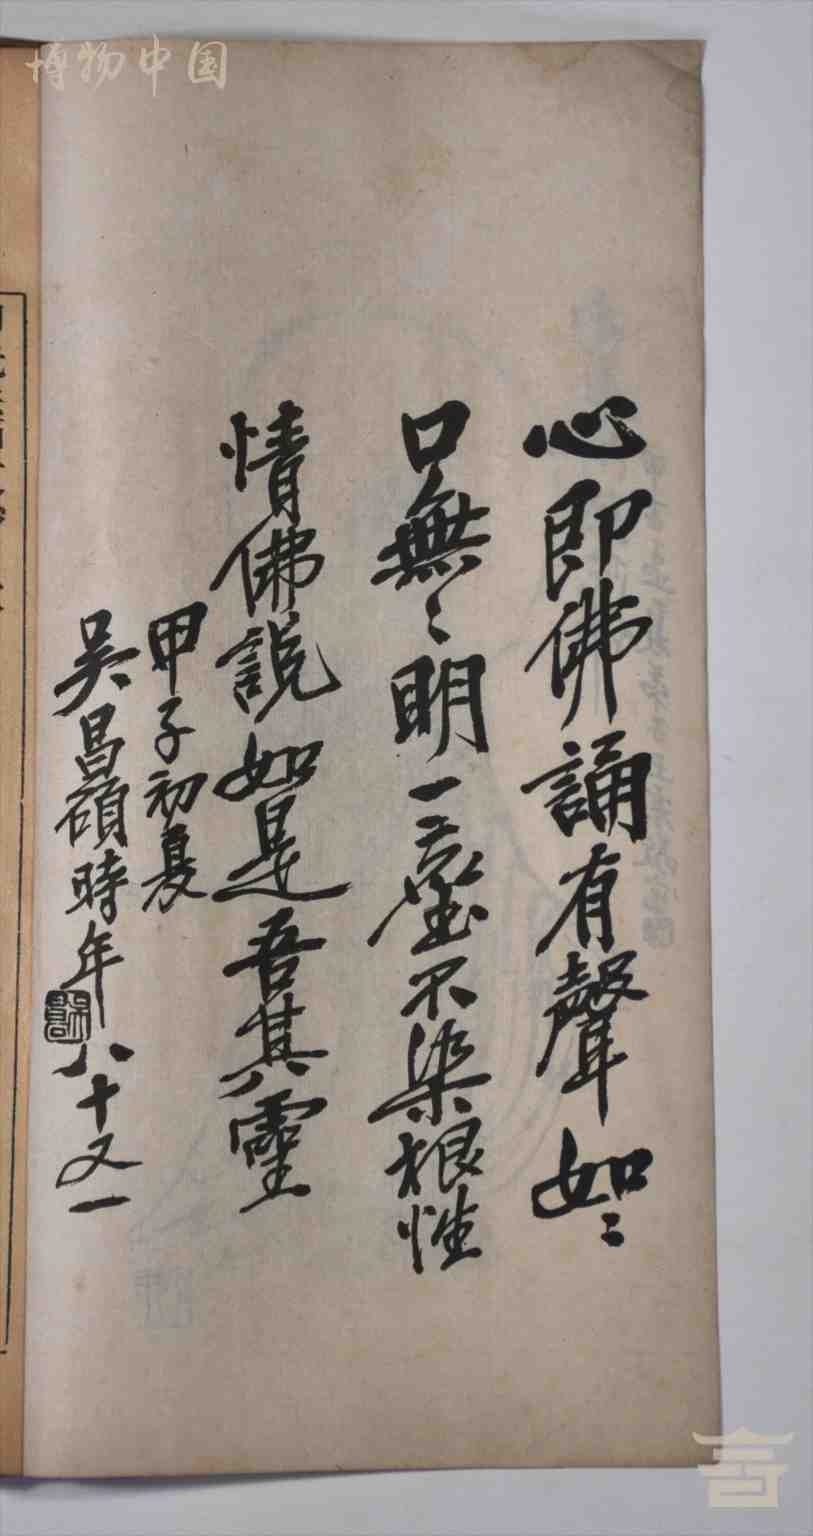 心即佛誦有聲如〻
口無〻明一塵不染根性
情佛說如是吾其靈
甲子初夏
吳昌碩時年八十又一
博物中国